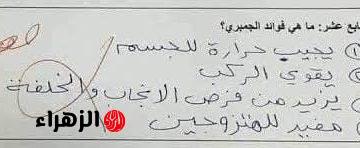 ابع عشر: ما هي فوائد الجمبري؟
١) يجيب حرارة للجسم
يقوي الركب
يزيد من فرص الانجاب والخلفة
مفيد للمتزوجين
الزهراء